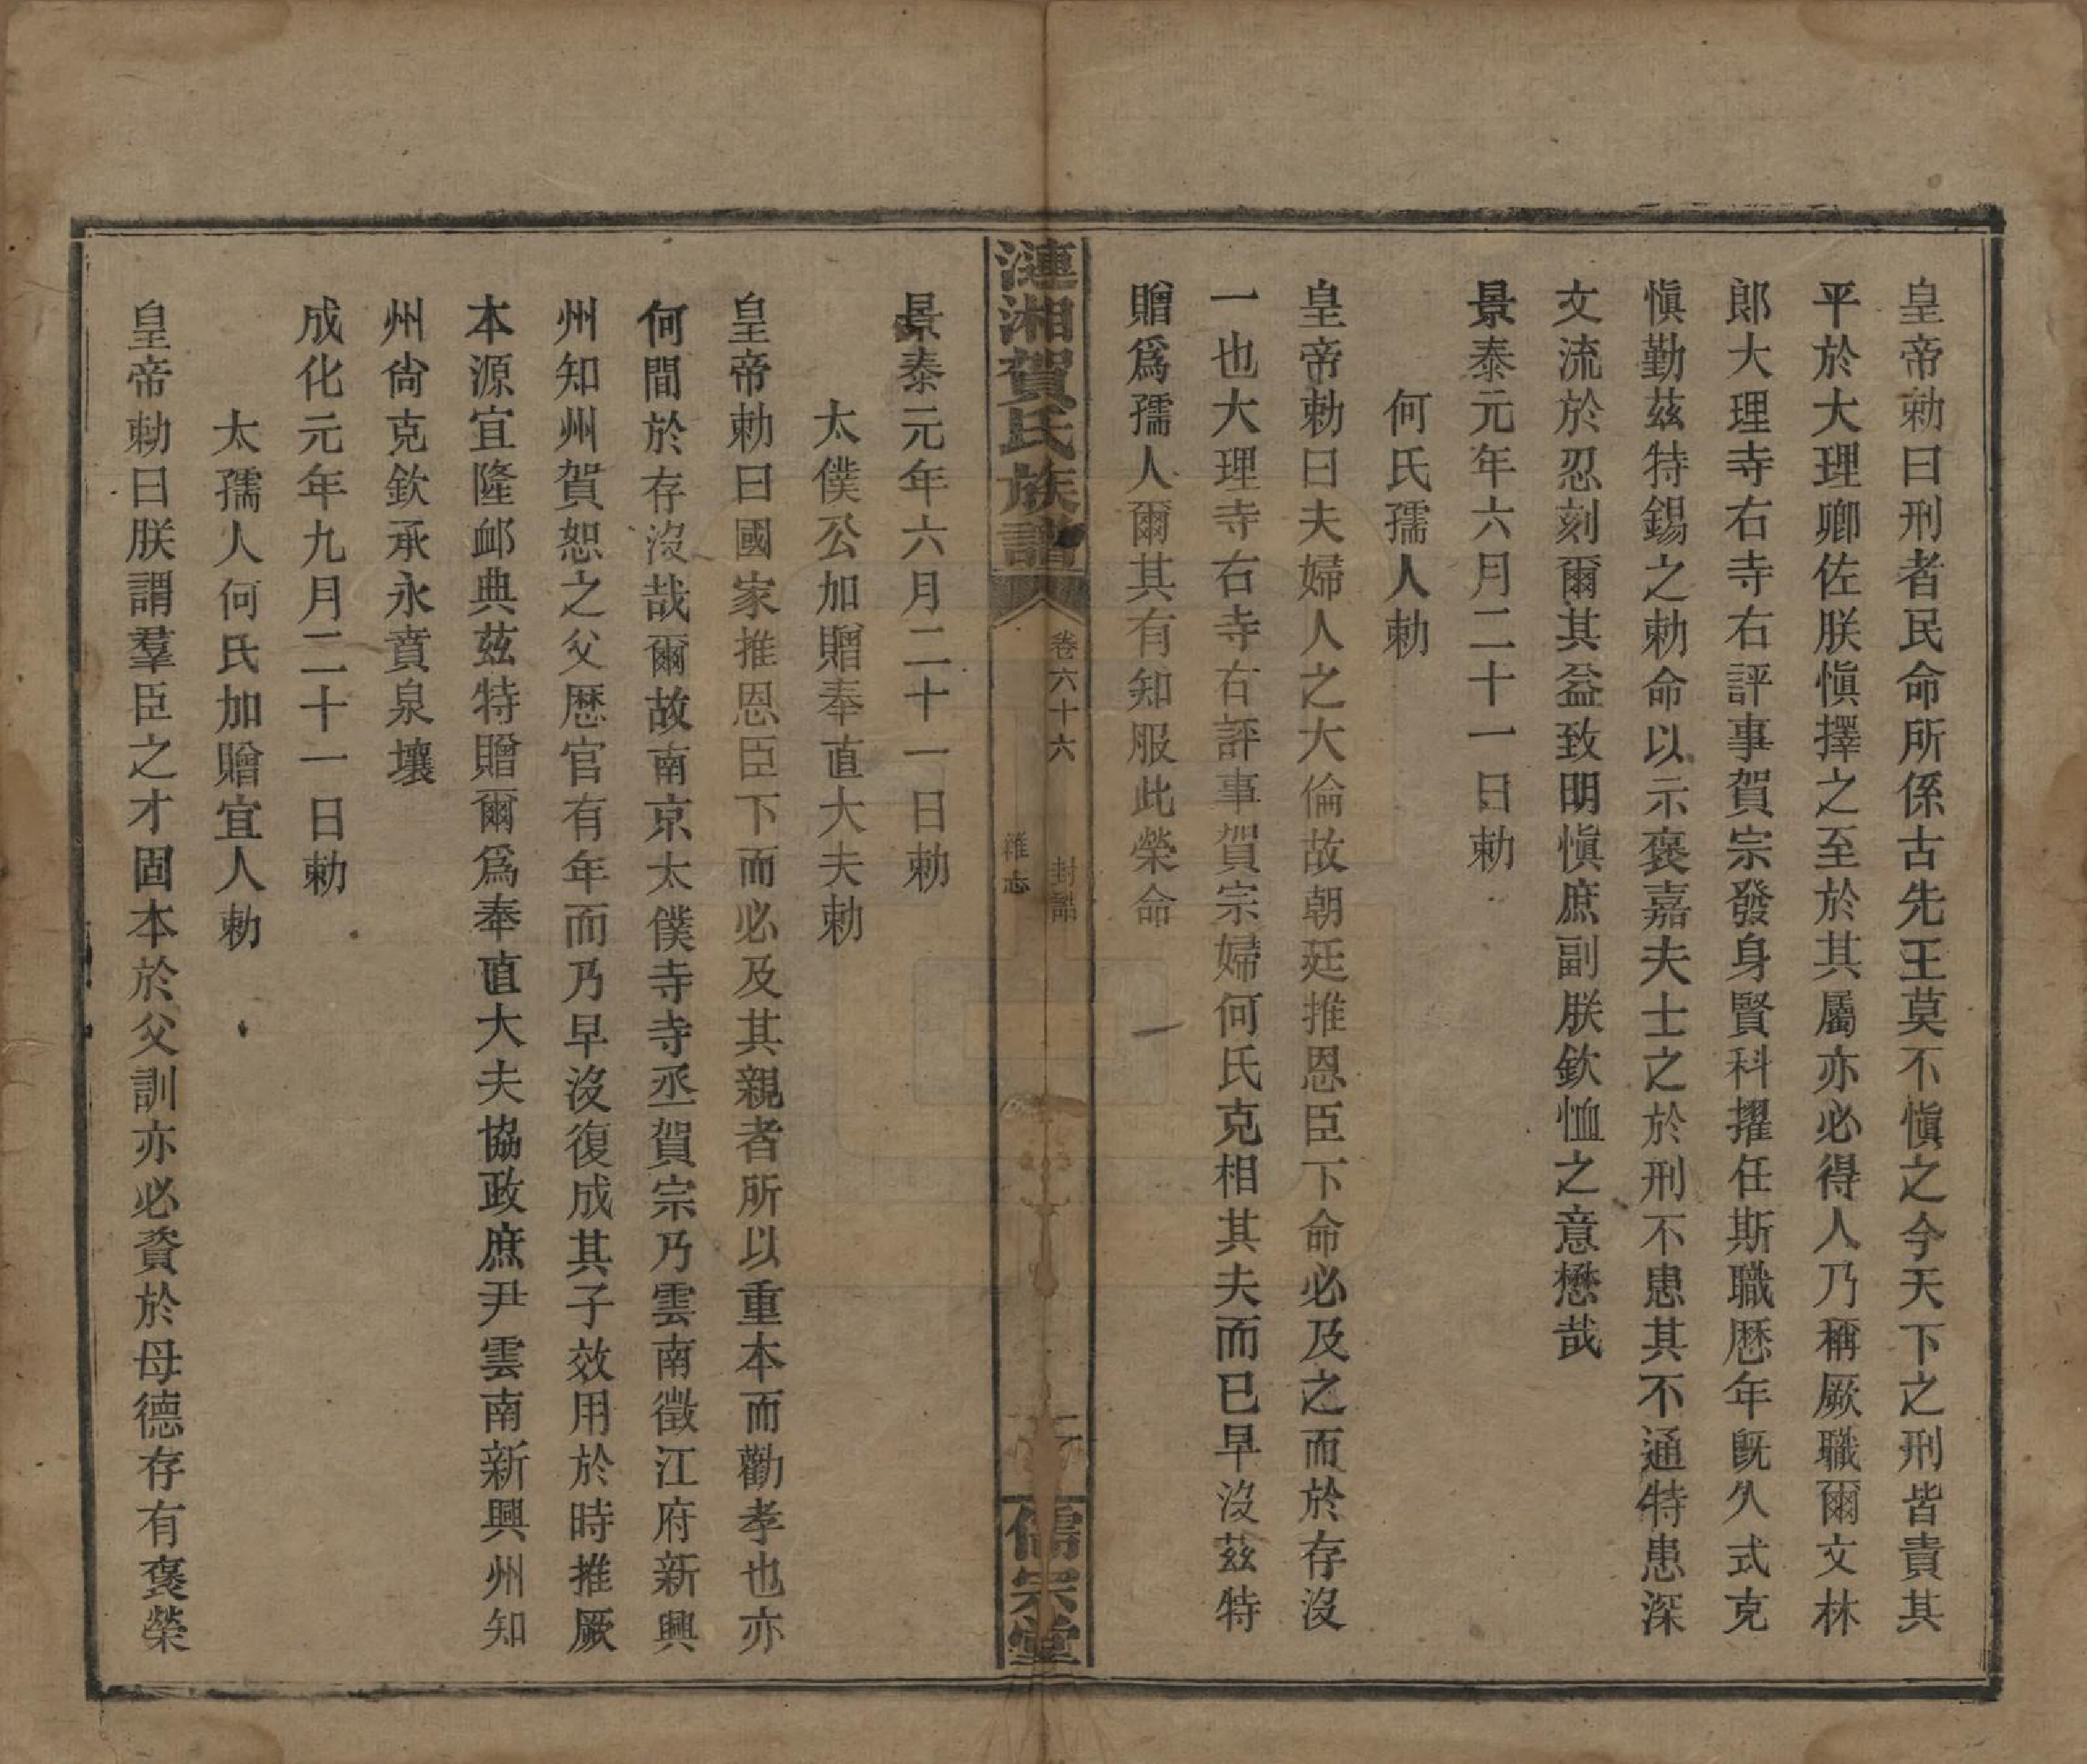 皇帝勅曰刑者民命所係古先王莫不愼之今天下之刑皆責其
平於大理卿佐朕愼擇之至於其屬亦必得人乃稱厥職爾文林
郎大理寺右寺右評事賀宗發身賢科擢任斯職歷年旣久式克
愼勤茲特錫之勅命以示褒嘉夫士之於刑不患其不通特患深
文流於忍刻爾其益致明愼庶副朕欽恤之意懋哉
景泰元年六月二十一日勅
何氏孺人勅
皇帝勅曰夫婦人之大倫故朝廷推恩臣下命必及之而於存沒
一也大理寺右寺右評事賀宗婦何氏克相其夫而已早沒茲特
贈爲孺人爾其有知服此榮命
漣湘賀氏族譜
卷六十六 封誥
雜志
儒宗堂
景泰元年六月二十一日勅
太僕公加贈奉直大夫勅
皇帝勅曰國家推恩臣下而必及其親者所以重本而勸孝也亦
何間於存沒哉爾故南京太僕寺寺丞賀宗乃雲南徵江府新興
州知州賀恕之父歷官有年而乃早沒復成其子效用於時推厥
本源宜隆卹典茲特贈爾爲奉直大夫協政庶尹雲南新興州知
州尙克欽承永賁泉壤
成化元年九月二十一日勅
太孺人何氏加贈宜人勅
皇帝勅曰朕謂羣臣之才固本於父訓亦必資於母德存有褒榮